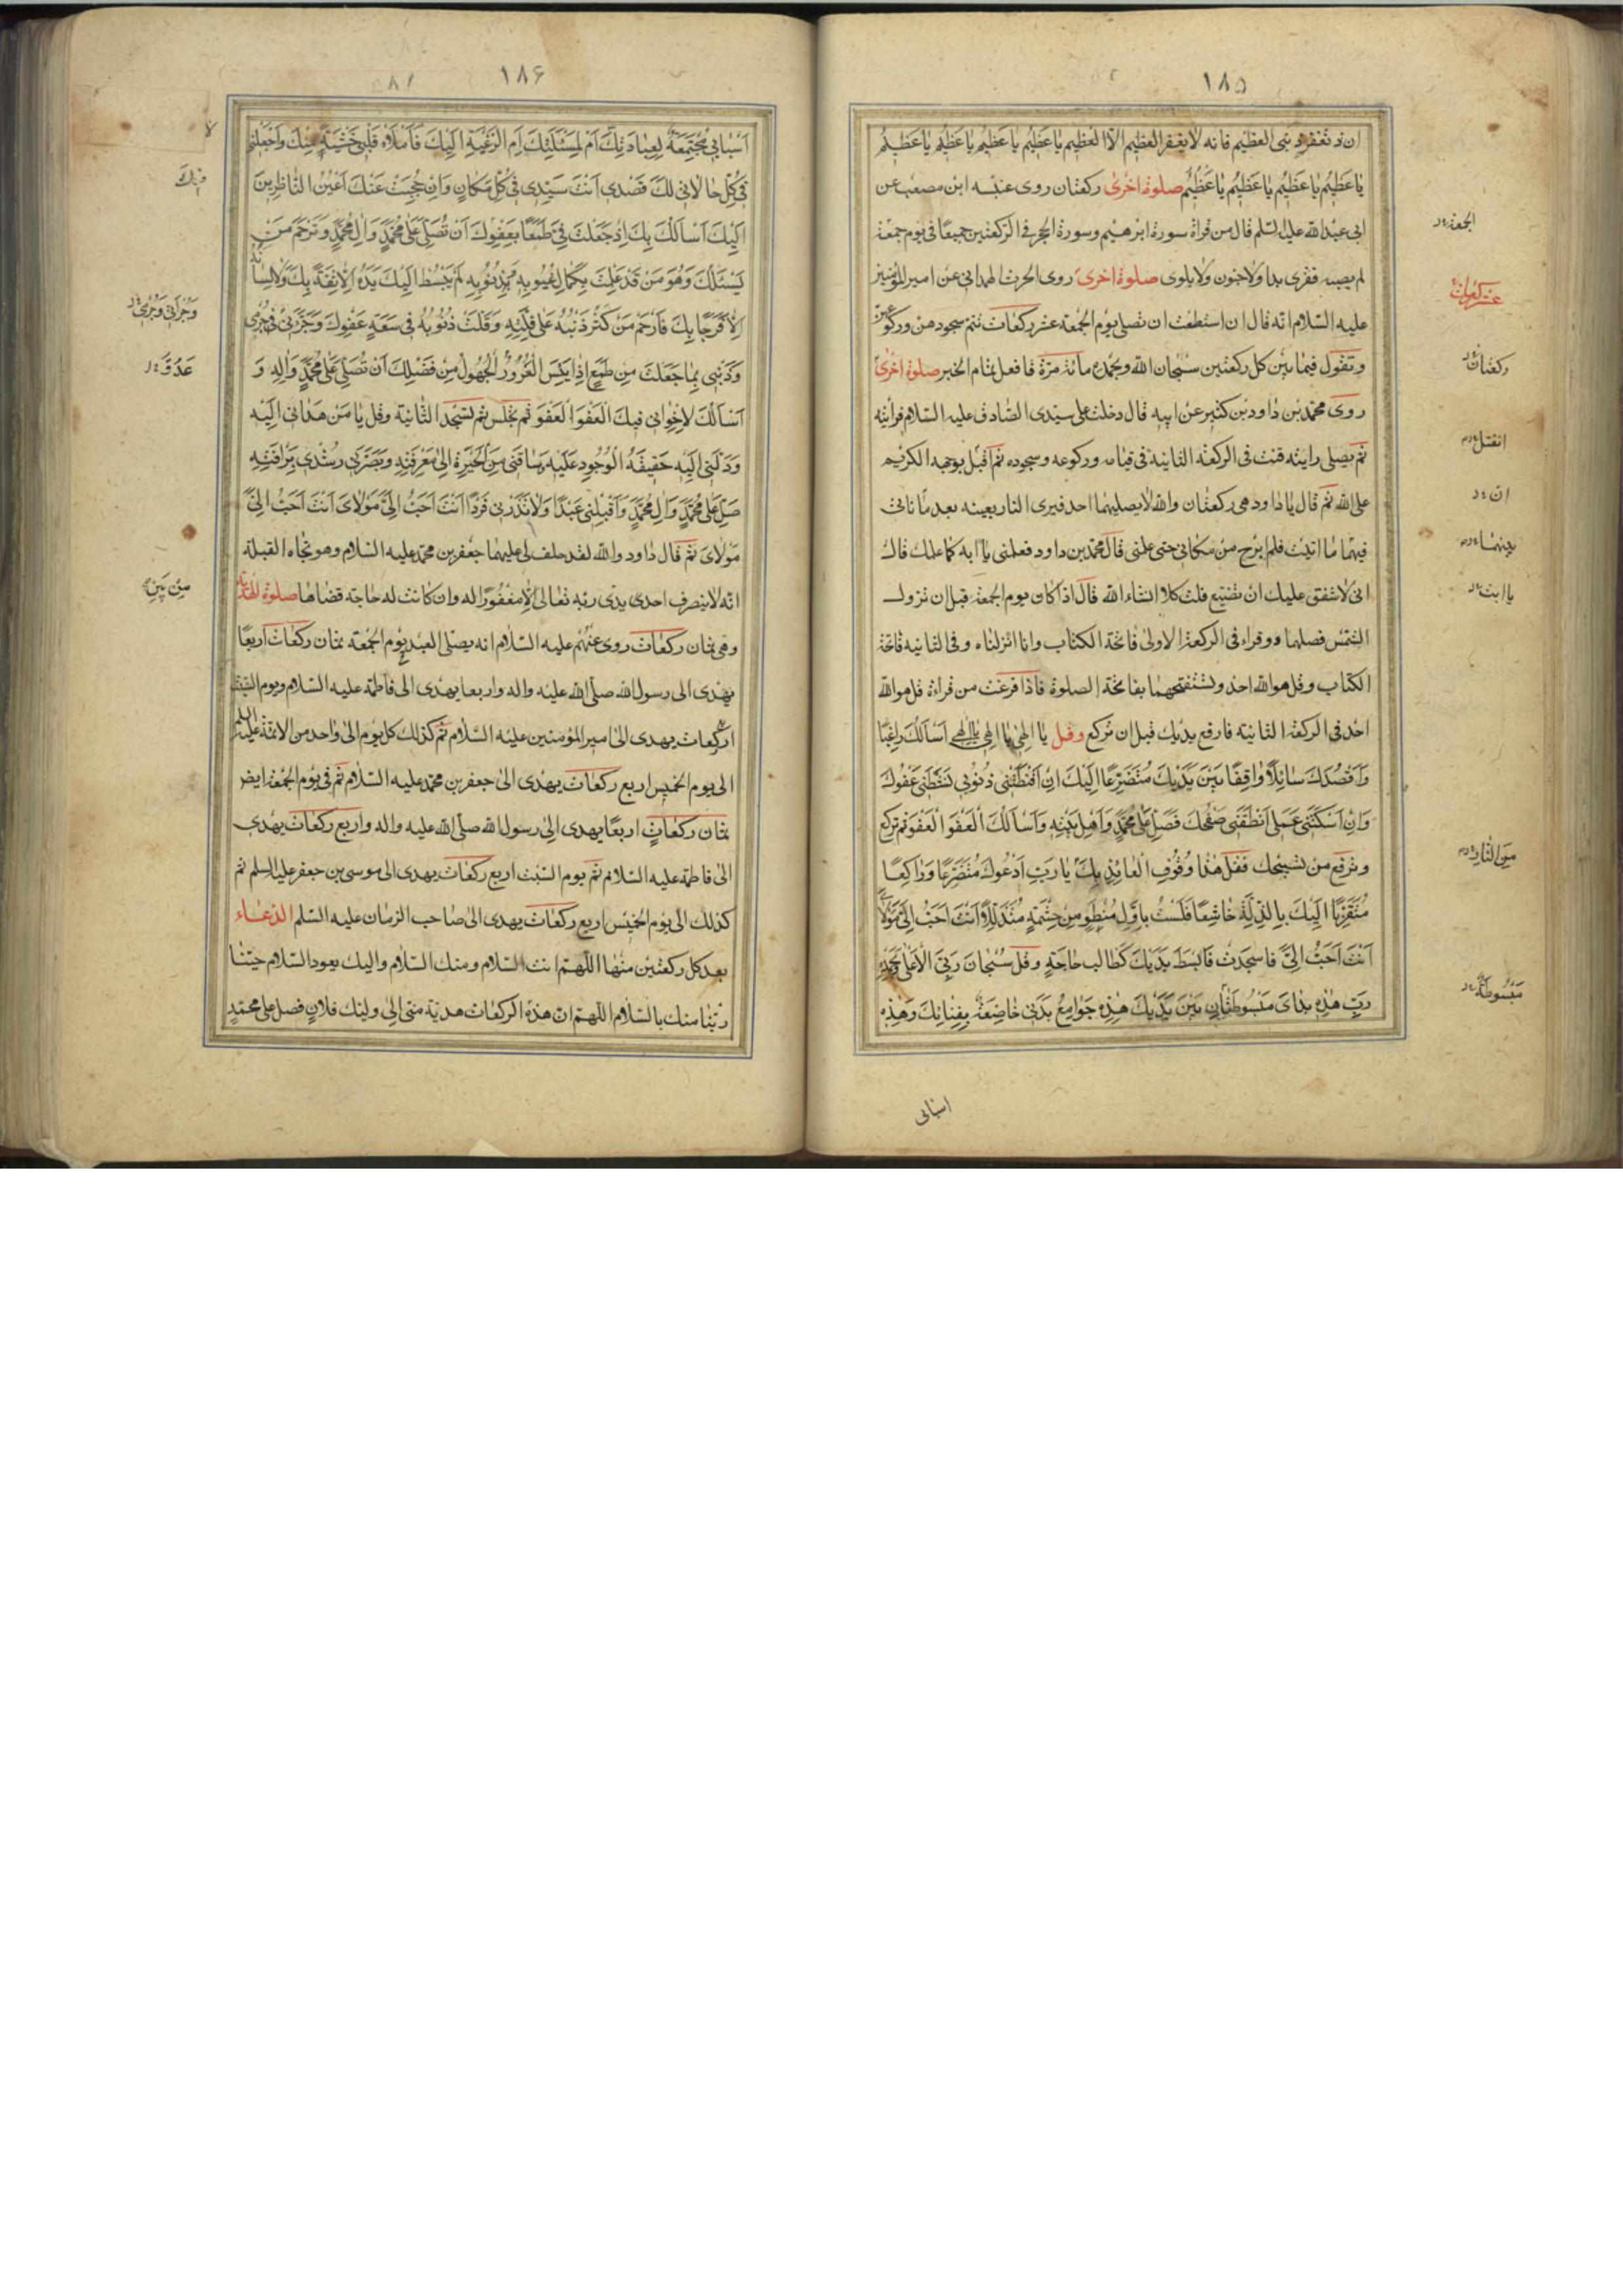 ١٨٥
ان تغفر ذنبى العظيم فانه لا يغفر العظيم الا العظيم يا عظيم يا عظيم يا عظيم يا عظيم
يا عظيم يا عظيم يا عظيم يا عظيم صلوة اخرى ركعتان روى عنبسه ابن مصعب عن
ابى عبد الله عليه السلم قال من قراة سورة ابرهيم وسورة الحجر فى الركعتين جميعا فى يوم جمعة
لم يصبه فقرى بدا ولا جنون ولا بلوى صلوة اخرى روى الحرث الهمدانى عن امير المؤمنين
عليه السلام انه قال ان استطعت ان تصلى يوم الجمعة عشر ركعات تتم سجودهن وركوعهن
وتقول فيما بين كل ركعتين سبحان الله وبحمده مائة مرة فافعل تمام الخبر صلوة اخرى
روى محمد بن داود بن كثير عن ابيه قال دخلت على سيدى الصادق عليه السلام فرأيته
ثم يصلى رايته قنت فى الركعة الثانية فى قيامه وركوعه وسجوده ثم اقبل بوجهه الكريم
على الله ثم قال يا داود هى ركعتان والله لا يصليهما احد فيرى النار بعينه بعد ما ياتى
فيهما ما اتيت فلم ابرح من مكانى حتى علمنى قال محمد بن داود فعلمنى يا ابه كما علمك قال
انى لاشفق عليك ان تضيع قلت كلا انشاء الله قال اذا كان يوم الجمعة قبل ان تزول
الشمس فصلهما ووقراء فى الركعة الاولى فاتحة الكتاب وانا انزلناه وفى الثانيه فاتحة
الكتاب وقل هو الله احد وتستفتحهما بفاتحة الصلوة فاذا فرغت من قرأة قل هو الله
احد فى الركعة الثانية فارفع يديك قبل ان تركع وقل يا الهى يا الهى يا الهى اسالك راغبا
واقصدك سائلا واقفا بين يديك متضرعا اليك ان اقنطتنى ذنوبى نشطنى عفوك
وان اسكتنى عملى انطقنى صفحك فصل على محمد واهل بيته واسالك العفو العفو ثم تركع
وترفع من تسبيحك فقل هذا وقوف العائذ بك يا رب ادعوك متضرعا وراكعا
متقربا اليك بالذلة خاشعا فلست باول منطو من حشمة متذللا انت احب الى مولاى
انت احب الى فاسجدت فابسط يديك كطالب حاجة وقل سبحان ربى الاعلى وبحمده
رب هذه يداى مبسوطتان بين يديك هذه جوامع بدنى خاضعة بفنائك وهذه
اسبابى
الجمعة
عشر ركعات
ركعتان
انفتل
ان
بينهما
يا ابت
من النار
مبسوطة
١٨۶
اسبابى مجتمعة لعبادتك ام لمسئلتك ام الرغبة اليك فاملاء قلبى خشية منك واجعلنى
فى كل حالاتى لك قصدى انت سيدى فى كل مكان وان حجبت عنك اعين الناظرين
اليك اسالك بك اذ جعلت فى طمعا بعفوك ان تصلى على محمد وال محمد وترحم من
يسئلك وهو من قد علمت بكمال عيوبه وذنوبه لم يبسط اليك يده الا ثقة بك ولا لسانه
الا فرحا بك فارحم من كثر ذنبه على قلته وقلت ذنوبه فى سعة عفوك وجرنى فى جرمى
وذنبى بما جعلت من طمع اذا يئس الغرور الجهول من فضلك ان تصلى على محمد واله و
اسالك لاخوانى فيك العفو العفو ثم تجلس ثم تسجد الثانية وقل يا من هدانى اليه
ودلنى اليه حقيقة الوجود عليه وساقنى من الحيرة الى معرفته وبصرنى رشدى برافته
صل على محمد وال محمد واقبلنى عبدا ولا تذرنى فردا انت احب الى مولاى انت احب الى
مولاى ثم قال داود والله لقد حلف لى عليهما جعفر بن محمد عليه السلام وهو تجاه القبلة
انه لا ينصرف احدى يدى ربه تعالى الا مغفورا له وان كانت له حاجة قضاها صلوة الهدية
وهى ثمان ركعات روى عنهم عليه السلام انه يصلى العبد يوم الجمعة ثمان ركعات اربعا
يهدى الى رسول الله صلى الله عليه واله واربعا يهدى الى فاطمة عليه السلام ويوم السبت
اربع ركعات يهدى الى امير المؤمنين عليه السلام ثم كذلك كل يوم الى واحد من الائمة عليهم السلم
الى يوم الخميس اربع ركعات يهدى الى جعفر بن محمد عليه السلام ثم فى يوم الجمعة ايض
ثمان ركعات اربعا يهدى الى رسول الله صلى الله عليه واله واربع ركعات يهدى
الى فاطمة عليه السلام ثم يوم السبت اربع ركعات يهدى الى موسى بن جعفر عليه السلم ثم
كذلك الى يوم الخميس اربع ركعات يهدى الى صاحب الزمان عليه السلم الدعاء
بعد كل ركعتين منها اللهم انت السلام ومنك السلام واليك يعود السلام حينا
ربنا منك بالسلام اللهم ان هذه الركعات هدية منى الى وليك فلان فصل على محمد
عدوى
من بين